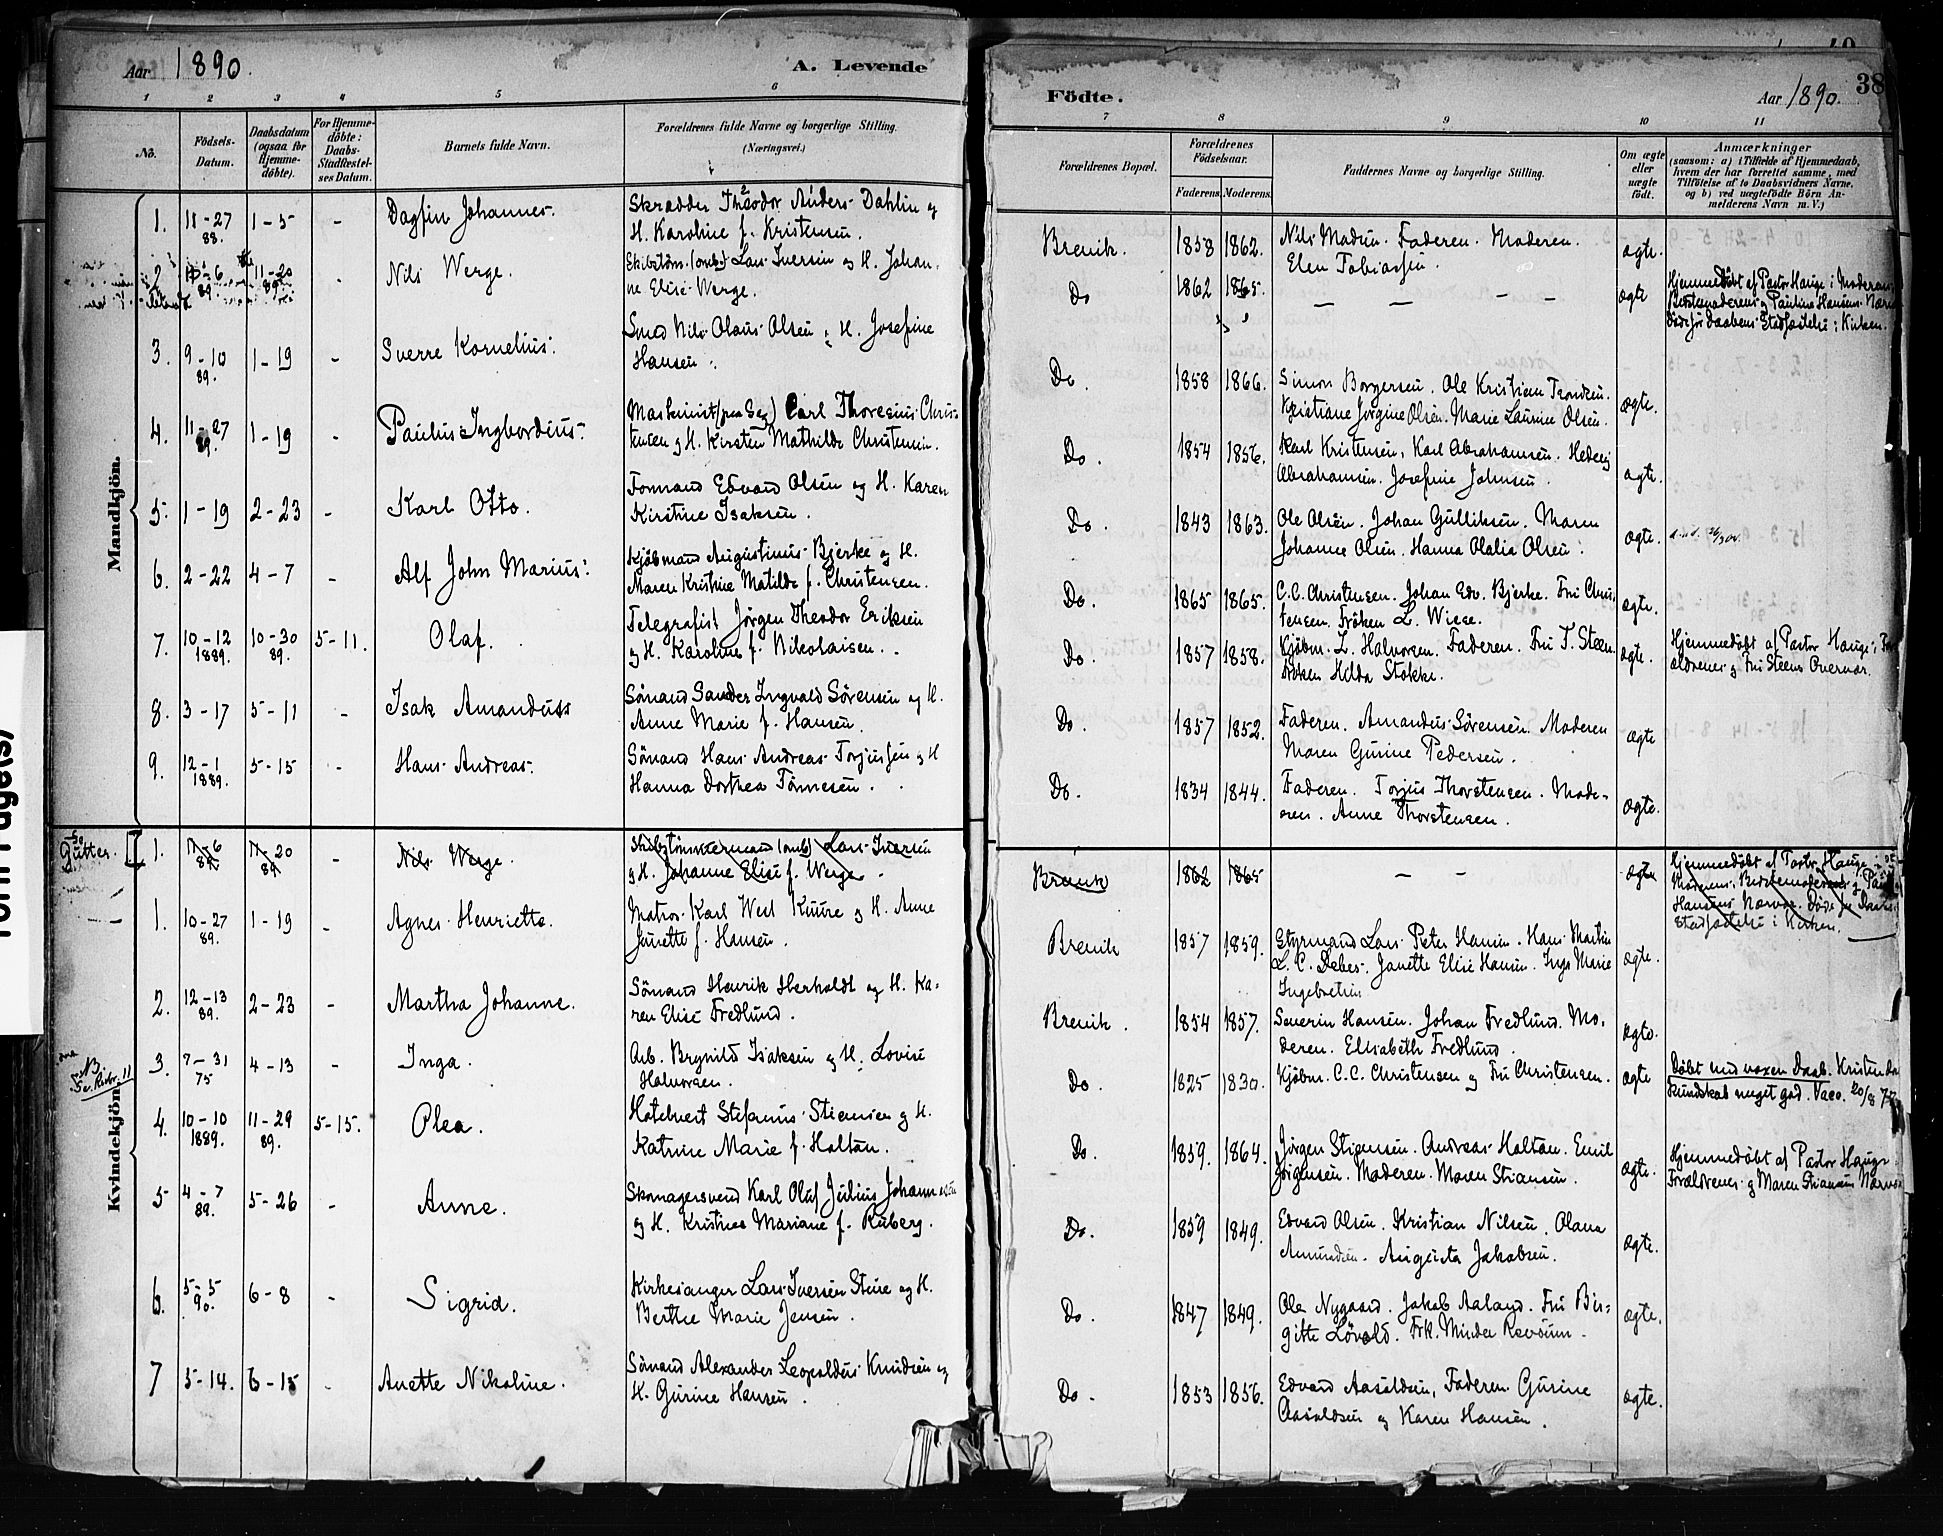 Aar 1890.
A. Levende
1 2 3 4 5 6
No.
Födsels-Datum.
Daabsdatum (ogsaa for Hjemme-döbte).
For Hjemme-döbte: Daabs-Stadfæstel-ses Datum.
Barnets fulde Navn.
Forældrenes fulde Navne og borgerlige Stilling.
(Næringsvei.)
Mandkjön.
1. 11-27 88. 1-5 - Dagfin Johannes. Skrædder Theodor Anders Dahlin og
H. Karoline f. Kristensen.
2 11-6 89 11-20 89 - Nils Werge. Skibstöm. (omb.) Lars Iversen og H. Johan-
ne Elise Werge.
3. 9-10 89. 1-19 - Sverre Kornelius. Smed Nils Olaus Olsen & H. Josefine
Hansen.
4. 11-27 89. 1-19 - Paulus Ingbordius. Maskinist Carl Thoresius Chris-
tensen og H. Kirsten Mathilde Christensen.
5. 1-19 2-23 - Karl Otto. Formand Edvard Olsen og H. Karen
Kirstine Isaksen.
6. 2-22 4-7 - Alf John Marius. Kjöbmand Augustinus Bjerke og H.
Maren Kristine Matilde f. Christensen.
7. 10-12 1889. 10-30 89. 5-11. Olaf. Telegrafist Jörgen Theodor Eriksen
og H. Karoline f. Nikolaisen.
8. 3-17 5-11 - Isak Amandus Sömand Sander Ingvald Sörensen og H.
Anne Marie f. Hansen.
9. 12-1 1889. 5-15 - Hans Andreas. Sömand Hans Andreas Torjussen og H
Hanna Dorthea Tönnesen.
Gutter.
1. 11-6 89 11-20 89 - Nils Werge. Skibstömmermand (omb) Lars Iversen
og H. Johanne Elise f. Werge
Kvindekjön.
1. 10-27 89. 1-19 - Agnes Henriette. Matros Karl West Kuure og H. Anne
Junette f. Hansen.
2. 12-13 89. 2-23 - Martha Johanne. Sömand Henrik Herholdt og H. Ka-
ren Elise Fredlund.
3. 7-31 75 4-13 - Inga. Arb. Brynild Isaksen og H. Lovise
Halvorsen.
4. 10-10 1889. 11-29 89. 5-15. Olea. Hotelvert Stefanus Stiansen og H.
Katrine Marie f. Holtan.
5 4-7 89. 5-26 - Anne. Skomagersvend Karl Oluf Julius Johannesen
og H. Kristine Mariane f. Ruberg.
6. 5-5 90. 6-8 - Sigrid. Kirkesanger Lars Iversen Stene og H.
Berthe Marie Jensen.
7 5-14. 6-15 - Anette Nikoline. Sömand Alexander Leopoldus Knudsen og
H. Gurine Hansen.
Födte.
Aar 1890.
38
7 8 9 10 11
Forældrenes Bopæl.
Forældrenes Födselsaar.
Faderens. Moderens.
Faddernes Navne og borgerlige Stilling.
Om ægte eller uægte födt.
Anmærkninger
(saasom: a) i Tilfælde af Hjemmedaab,
hvem der har forrettet samme, med
Tilföielse af to Daabsvidners Navne,
og b) ved uægtefödte Börn An-
melderens Navn m. V.)
Brevik. 1858 1862. Nils Madsen. Faderen. Moderen.
Elen Tobiassen. ægte.
Do 1862 1865. — — — — ægte Hjemmedöbt af Pastor Hauge i Moderens
Bestemoderens og Pauline Hansens Nærv.
Döde för Daabens Stadfæstelse i Kirken.
Do. 1858 1866. Simon Borgersen. Ole Kristian Trondsen.
Kristiane Jörgine Olsen. Marie Laurine Olsen. ægte.
Do. 1854 1856. Karl Kristensen, Karl Abrahamsen. Hedevig
Abrahamsen. Josefine Johnsen. ægte.
Do. 1843 1863. Ole Olsen. Johan Gulliksen. Maren
Johanne Olsen. Hanna Olalia Olsen. ægte.
Do. 1865 1865. C.C. Christensen. Johan Edv. Bjerke. Fru Chris-
tensen. Fröken L. Wiese. ægte.
Do. 1857 1858. Kjöbm. L. Halvorsen. Faderen. Fru T. Steen.
Fröken Hilda Stokke. ægte. Hjemmedöbt af Pastor Hauge i For-
ældrenes og Fru Steens Overvær.
Do. 1857 1852. Faderen. Amandus Sörensen. Moderen
Maren Gurine Pedersen. ægte
Do. 1834 1844. Faderen. Torjus Thorstensen. Mode-
ren. Anne Thorstensen. ægte.
Brevik 1862 1865 — — ægte Hjemmedöbt af Pastor Hauge i
Moderens, Bestemoderens og Pauline
Hansens Nærvær. Döde för Daabs-
stadfæstelse i Kirken.
Brevik 1857 1859. Styrmand Lars Peter Hansen. Hans Martin
L. C. Debes. Janette Elise Hansen. Inga Marie
Ingebretsen ægte.
Brevik. 1854 1857. Severin Hansen. Johan Fredlund. Mo-
deren. Elisabeth Fredlund. ægte.
Do. 1825 1830. Kjöbm. C.C. Christensen og Fru Christensen. ægte Döbt ved voxen Daab. Kristendoms-
kundskab meget god. Vacc. 20/8 77
Do. 1859. 1864. Jörgen Stiansen. Andreas Holtan. Emil
Jörgensen. Moderen. Maren Stiansen. ægte. Hjemmedöbt af Pastor Hauge
Forældrenes og Maren Stiansens Nærvær
Do. 1859 1849. Edvard Olsen. Kristian Nilsen. Olava
Amundsen. Augusta Jakobsen. ægte.
Do. 1847 1849. Ole Nygaard. Jakob Aaland. Fru Bir-
gitte Lövold. Frk. Minda Rævöum. ægte.
Do. 1853 1856. Edvard Aasoldsen, Faderen. Gurine
Aasoldsen og Karen Hansen. ægte.